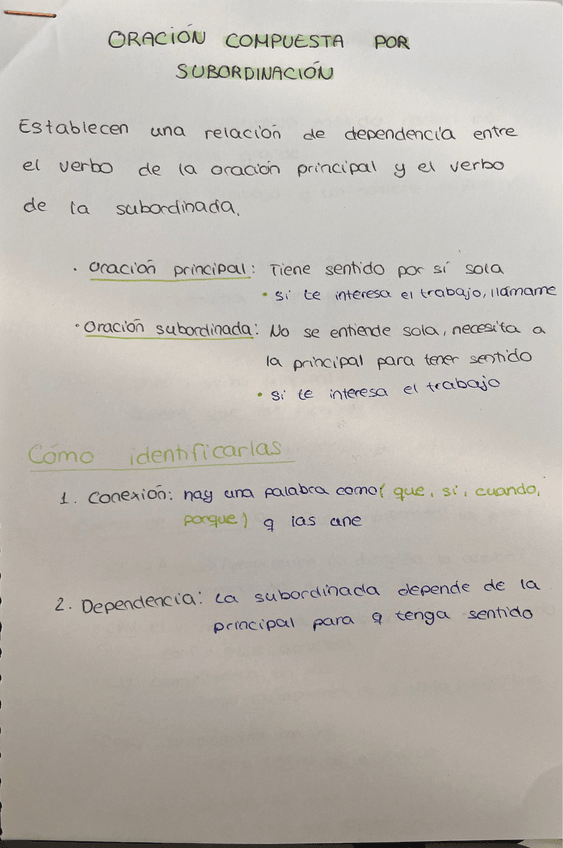 ORACIÓN COMPUESTA POR
SUBORDINACIÓN
Establecen una relación de dependencia entre
el verbo de la oración principal y el verbo
de la subordinada.
· Oración principal: Tiene sentido por sí sola
• si te interesa el trabajo, llámame
· Oración subordinada: No se entiende sola, necesita a
la principal para tener sentido
• si te interesa el trabajo
Cómo identificarlas
1. Conexión: hay una palabra como (que, si, cuando,
porque) q las une
2. Dependencia: La subordinada depende de la
principal para q tenga sentido